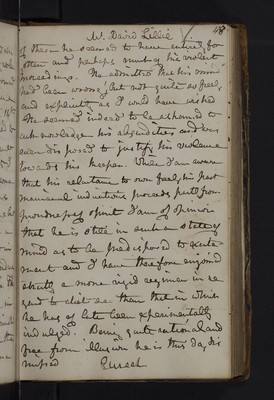 Mr. David Lillie
48
of these he seemed to have entirely for
gotten and perhaps most of his violent
proceedings. He admitted that his mind
had been wrong, but not quite as freely
and explicitly as I could have wished
He seemed indeed to be ashamed to
acknowledge his absurdities and was
even disposed to justify his violence
towards his keeper. While I am aware
that his reluctance to own freely his past
maniacal indications proceeds partly from
proudness of spirit I am of opinion
that he is still in such a state of
mind as to be predisposed to excite
ment and I have therefore enjoined
strictly a more rigid regimen in re
gard to diet &c than that in which
he has of late been experimentally
indulged. Being quite rational and
free from illusion he is this day dis
missed